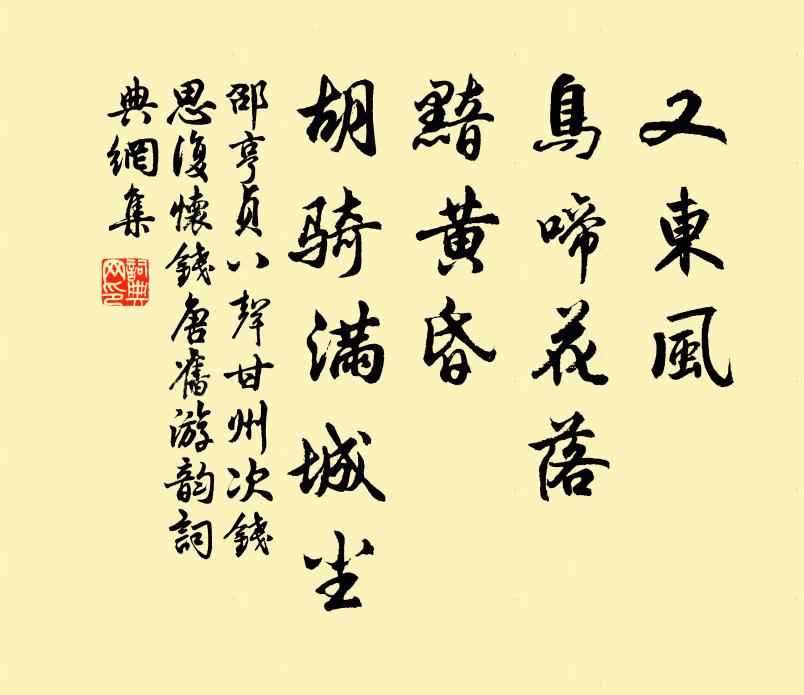 又東風
鳥啼花落
黯黃昏
胡騎滿城尘
邵亨貞八聲甘州次錢
思復懷錢唐舊游韵詞
典網集
詞典網印